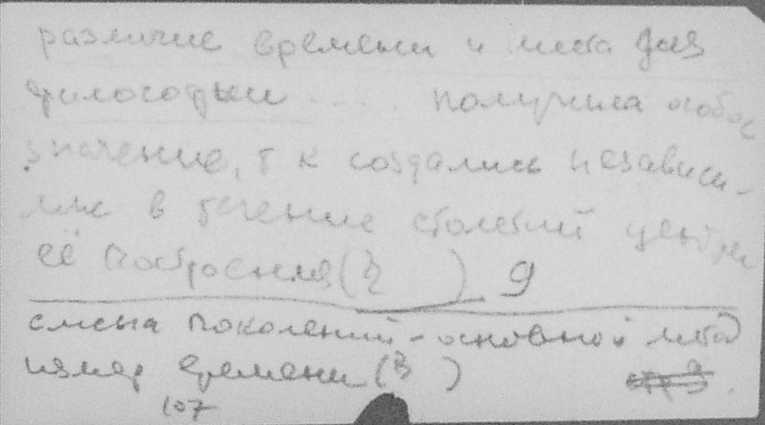 различие времени и места для
философии .... получила особое
значение, т к создались независи-
мые в течение столетий центры
её построения ( ) 9
смена поколений - основной метод
измер времени ( )
107